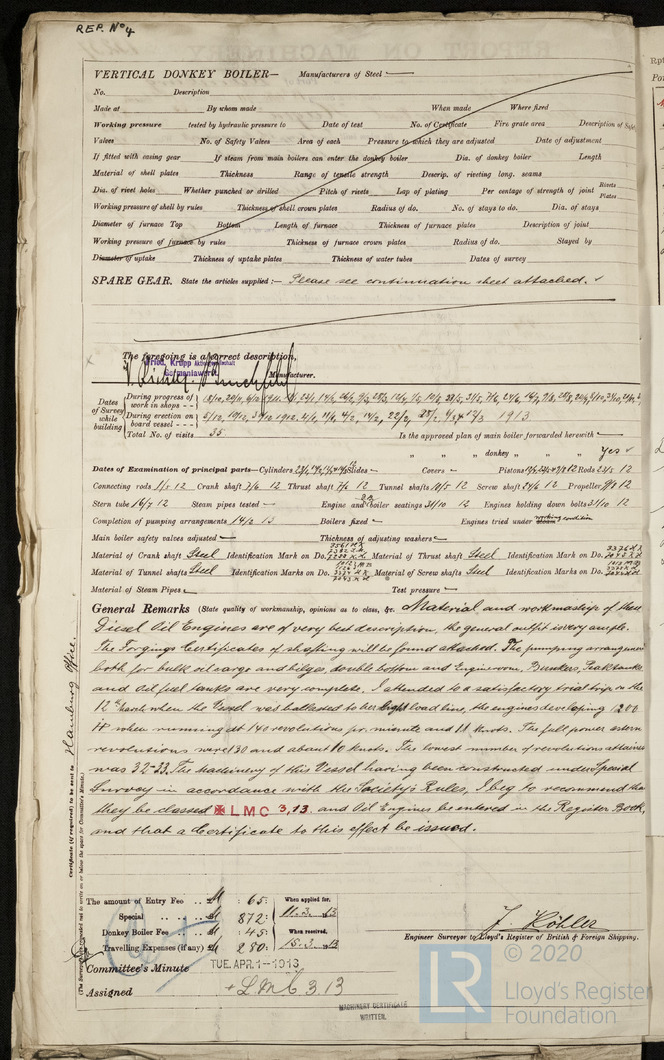 REP. No 4
VERTICAL DONKEY BOILER— Manufacturers of Steel
No. Description
Made at By whom made When made Where fixed
Working pressure tested by hydraulic pressure to Date of test No. of Certificate Fire grate area Description of Safety
Valves No. of Safety Valves Area of each Pressure to which they are adjusted Date of adjustment
If fitted with easing gear If steam from main boilers can enter the donkey boiler Dia. of donkey boiler Length
Material of shell plates Thickness Range of tensile strength Descrip. of riveting long. seams
Dia. of rivet holes Whether punched or drilled Pitch of rivets Lap of plating Per centage of strength of joint Rivets Plates
Working pressure of shell by rules Thickness of shell crown plates Radius of do. No. of stays to do. Dia. of stays
Diameter of furnace Top Bottom Length of furnace Thickness of furnace plates Description of joint
Working pressure of furnace by rules Thickness of furnace crown plates Radius of do. Stayed by
Diameter of uptake Thickness of uptake plates Thickness of water tubes Dates of survey
SPARE GEAR. State the articles supplied:— Please see continuation sheet attached.
The foregoing is a correct description,
Fried. Krupp Aktiengesellschaft
Germaniawerft
Manufacturer.
Dates of Survey while building
During progress of work in shops - -
During erection on board vessel - - - 1913
Total No. of visits 35 Is the approved plan of main boiler forwarded herewith
" " " donkey " " " yes
Dates of Examination of principal parts—Cylinders Slides Covers Pistons Rods 23/5 12
Connecting rods 1/5 12 Crank shaft 7/6 12 Thrust shaft 7/6 12 Tunnel shafts 18/5 12 Screw shaft 24/6 12 Propeller 9/8 12
Stern tube 16/7 12 Steam pipes tested Engine and boiler seatings 31/10 12 Engines holding down bolts 31/10 12
Completion of pumping arrangements 14/2 13 Boilers fixed Engines tried under working condition
Main boiler safety valves adjusted Thickness of adjusting washers
Material of Crank shaft Steel Identification Mark on Do. Material of Thrust shaft Steel Identification Mark on Do.
Material of Tunnel shafts Steel Identification Marks on Do. Material of Screw shafts Steel Identification Marks on Do.
Material of Steam Pipes Test pressure
General Remarks (State quality of workmanship, opinions as to class, &c. Material and workmaship of these
Diesel Oil Engines are of very best description, the general outfit is very ample.
The Forgings Certificates of shafting will be found attached. The pumping arrangement
both for bulk oil cargo and bilge, double bottom and Engineroom, Bunkers, Peaktanks
and Oil fuel tanks are very complete. I attended to a satisfactory trial trip on the
12th March when the Vessel was ballasted to her light load line, the engines developing 1200
IP when running at 140 revolutions for minute and 11 knots. The full power astern
revolutions were 130 and about 10 knots. The lowest number of revolutions attained
was 32-33. The Machinery of this Vessel having been constructed under Special
Survey in accordance with the Society's Rules, I beg to recommend that
they be classed ✠ LMC 3,13. and Oil Engines be entered in the Register Book,
and that a Certificate to this effect be issued.
Certificate (if required) to be sent to Hamburg Office.
(The Surveyors are requested not to write on or below the space for Committee's Minute.)
The amount of Entry Fee .. M : 65 : When applied for,
Special .. .. .. M 872 : 11.3.13
Donkey Boiler Fee .. .. M : 45 : When received,
Travelling Expenses (if any) M 280 : 15.3.13
J. Köhler
Engineer Surveyor to Lloyd's Register of British & Foreign Shipping.
Committee's Minute TUE. APR. 1-1913
Assigned + LMC 3.13
MACHINERY CERTIFICATE
WRITTEN.
LR
© 2020
Lloyd's Register
Foundation